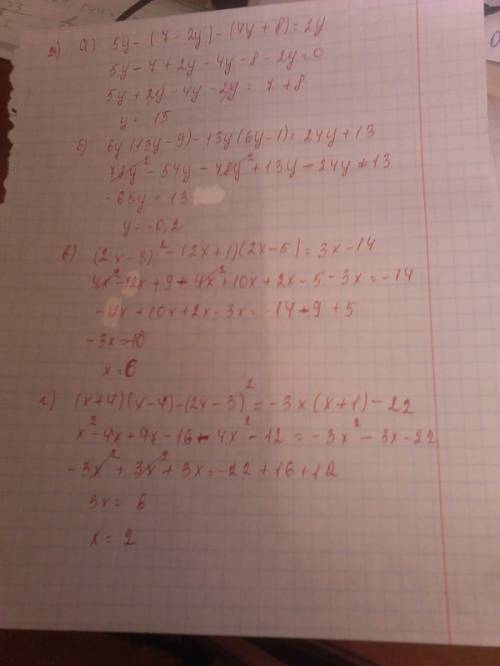 2) а) 5y-(7-2y)-(4y+8)=2y
5y-7+2y-4y-8-2y=0
5y+2y-4y-2y=7+8
y=15
б) 6y(13y-9)-13y(6y-1)=24y+13
78y²-54y-78y²+13y-24y=13
-65y=13
y=-0,2
в) (2x-3)²-(2x+1)(2x-5)=3x-14
4x²-12x+9-4x²+10x+2x-5-3x=-14
-12x+10x+2x-3x=-14-9+5
-3x=-18
x=6
г) (x+4)(x-4)-(2x-3)²=-3x(x+1)-22
x²-4x+4x-16-4x²-12=-3x²-3x-22
-3x²+3x²+3x=-22+16+12
3x=6
x=2